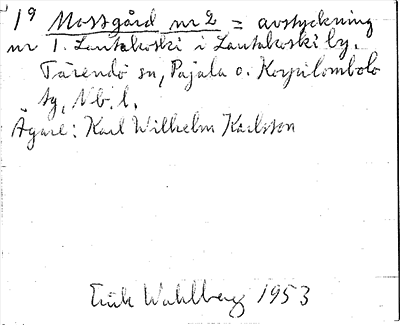 19 Mossgård nr 2 = avstyckning
nr 1. Lautakoski i Lautakoski by.
Tärendö sn, Pajala o. Korpilombolo
tg, Nb. l.
Ägare: Karl Wilhelm Karlsson
Erik Wahlberg 1953